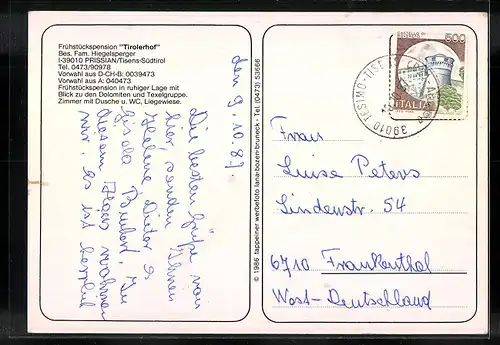 Frühstückspension "Tirolerhof"
Bes. Fam. Hiegelsperger
I-39010 PRISSIAN/Tisens-Südtirol
Tel. 0473/90978
Vorwahl aus D-CH-B: 0039473
Vorwahl aus A: 040473
Frühstückspension in ruhiger Lage mit
Blick zu den Dolomiten und Texelgruppe.
Zimmer mit Dusche u. WC, Liegewiese.
den 9.10.89.
Die besten Grüße von
hier, senden Ihnen
Helene Dieter &
Gisela
In
diesem Haus wohnen
wir, es ist herrlich
© 1986 tappeiner werbefoto lana-bozen-bruneck - Tel. (0473) 53666
500
ITALIA
39010 TESIMO-TISE
Frau
Luise Peters
Lindenstr. 54
6710 Frankenthal
West-Deutschland